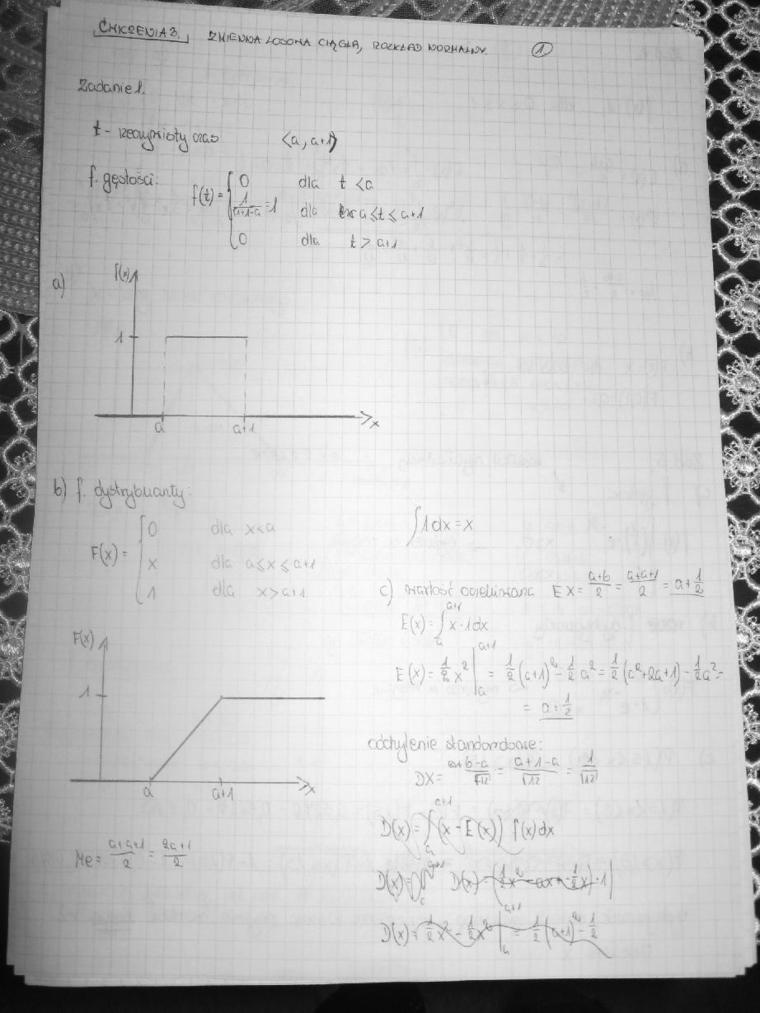 ĆWICZENIA 3. ZMIENNA LOSOWA CIĄGŁA, ROZKŁAD NORMALNY. 1
Zadanie 1.
t - rzeczywisty czas <a, a+1>
f. gęstości: f(t) =
0 dla t < a
1/(a+1-a) = 1 dla a ≤ t ≤ a+1
0 dla t > a+1
a)
f(x)
1
a a+1 x
b) f. dystrybuanty:
F(x) =
0 dla x<a
x dla a≤x≤a+1
1 dla x>a+1
F(x)
1
a a+1 x
Me = (a+a+1)/2 = (2a+1)/2
∫1dx = x
c) wartość oczekiwana EX = (a+b)/2 = (a+a+1)/2 = a+1/2
E(x) = ∫ₐᵃ⁺¹ x·1dx
E(x) = 1/2 x² |ₐᵃ⁺¹ = 1/2 (a+1)² - 1/2 a² = 1/2 (a²+2a+1) - 1/2 a² =
= a+1/2
odchylenie standardowe:
DX = (b-a)/√12 = (a+1-a)/√12 = 1/√12
D(x) = ∫ₐᵃ⁺¹ (x - E(x)) f(x)dx
D(x) = 1/2 x² - 1/2 x² |ₐᵃ⁺¹ = 1/2 (a+1)² - 1/2